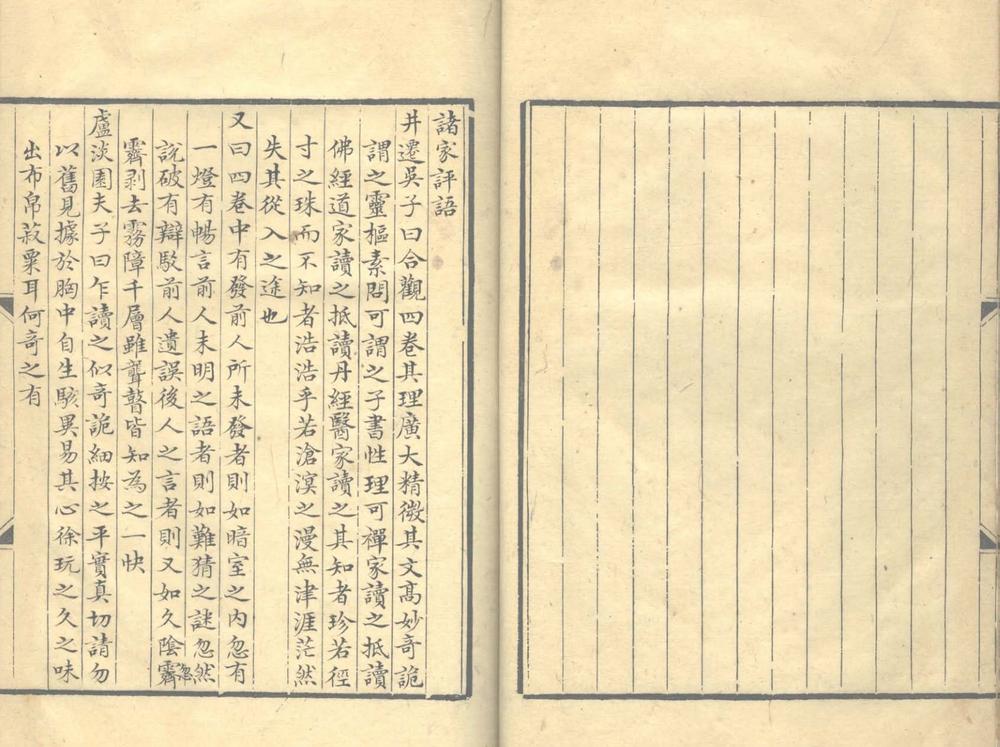 諸家評語
井遷吳子曰合觀四卷其理廣大精微其文髙妙奇詭
謂之靈樞素問可謂之子書性理可禪家讀之抵讀
佛經道家讀之抵讀丹經醫家讀之其知者珍若徑
寸之珠而不知者浩浩乎若滄溟之漫無津涯茫然
失其從入之途也
又曰四卷中有發前人所未發者則如暗室之內忽有
一燈有暢言前人未明之語者則如難猜之謎忽然
說破有辯駁前人遺誤後人之言者則又如久陰忽霽
霽剥去霧障千層雖聾瞽皆知為之一快
盧淡園夫子曰乍讀之似奇詭細按之平實真切請勿
以舊見據於胸中自生駭異易其心徐玩之久之味
出布帛菽粟耳何奇之有